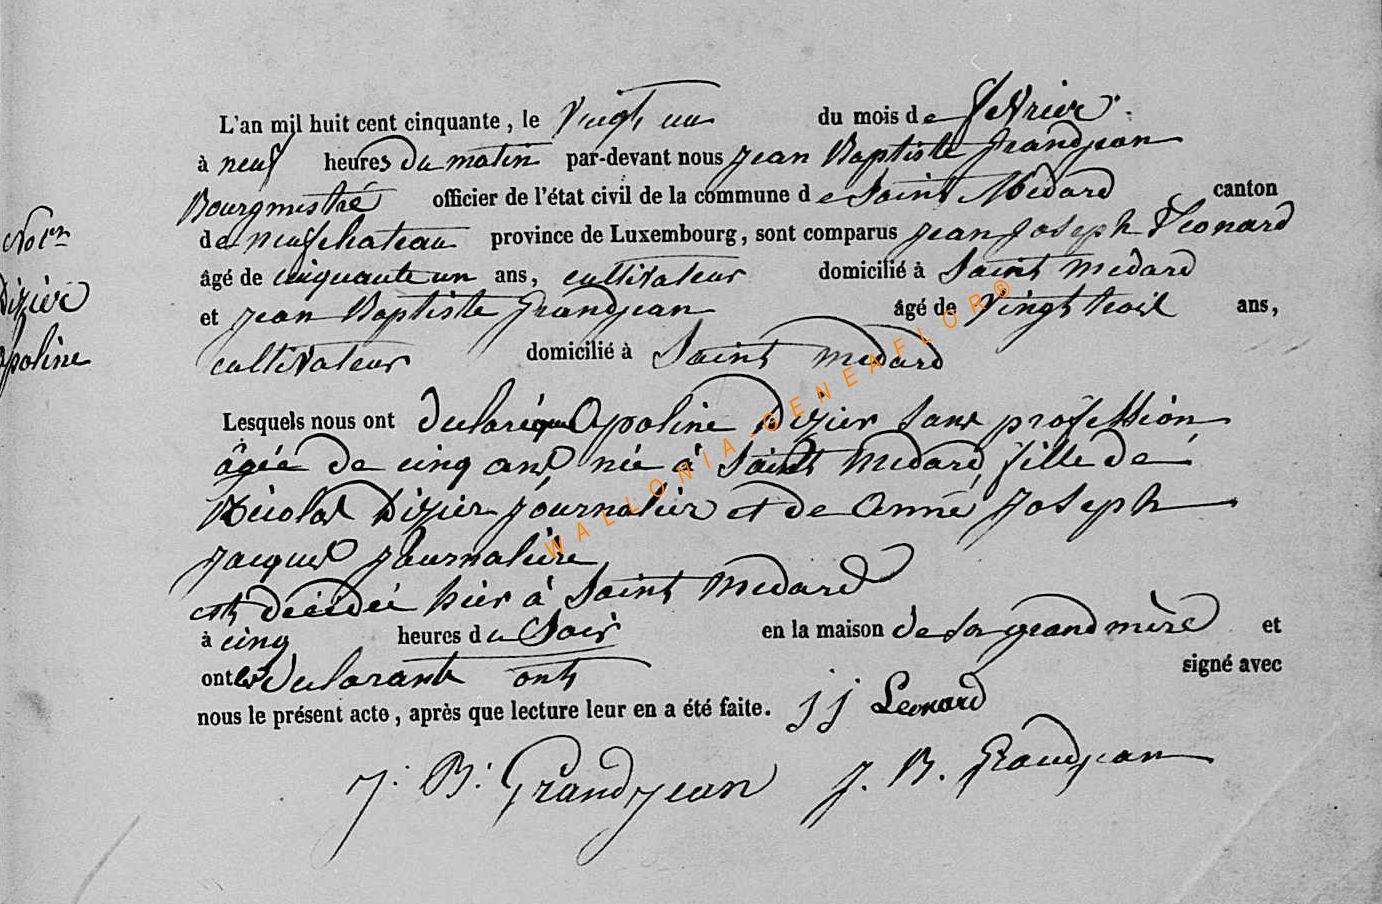 L'an mil huit cent cinquante, le vingt un du mois de fevrier
à neuf heures du matin par-devant nous jean Baptiste Grandjean
Bourgmestre officier de l'état civil de la commune de Saint Médard canton
de neufchateau province de Luxembourg, sont comparus jean joseph Leonard
âgé de cinquante un ans, cultivateur domicilié à Saint medard
et jean Baptiste Grandjean âgé de vingt trois ans,
cultivateur domicilié à Saint medard
Lesquels nous ont declaré que Apoline Dizier sans profession
âgée de cinq ans née à Saint medard fille de
Nicolas Dizier journalier et de Anne joseph
jacques journalière
est décédée hier à Saint medard
à cinq heures du Soir en la maison de sa grand mère et
ont les declarants ont signé avec
nous le présent acte, après que lecture leur en a été faite. j j Leonard
J. B. Grandjean J. B. Grandjean
Dizier
apoline
WALLONIA-GENEAFLOR®